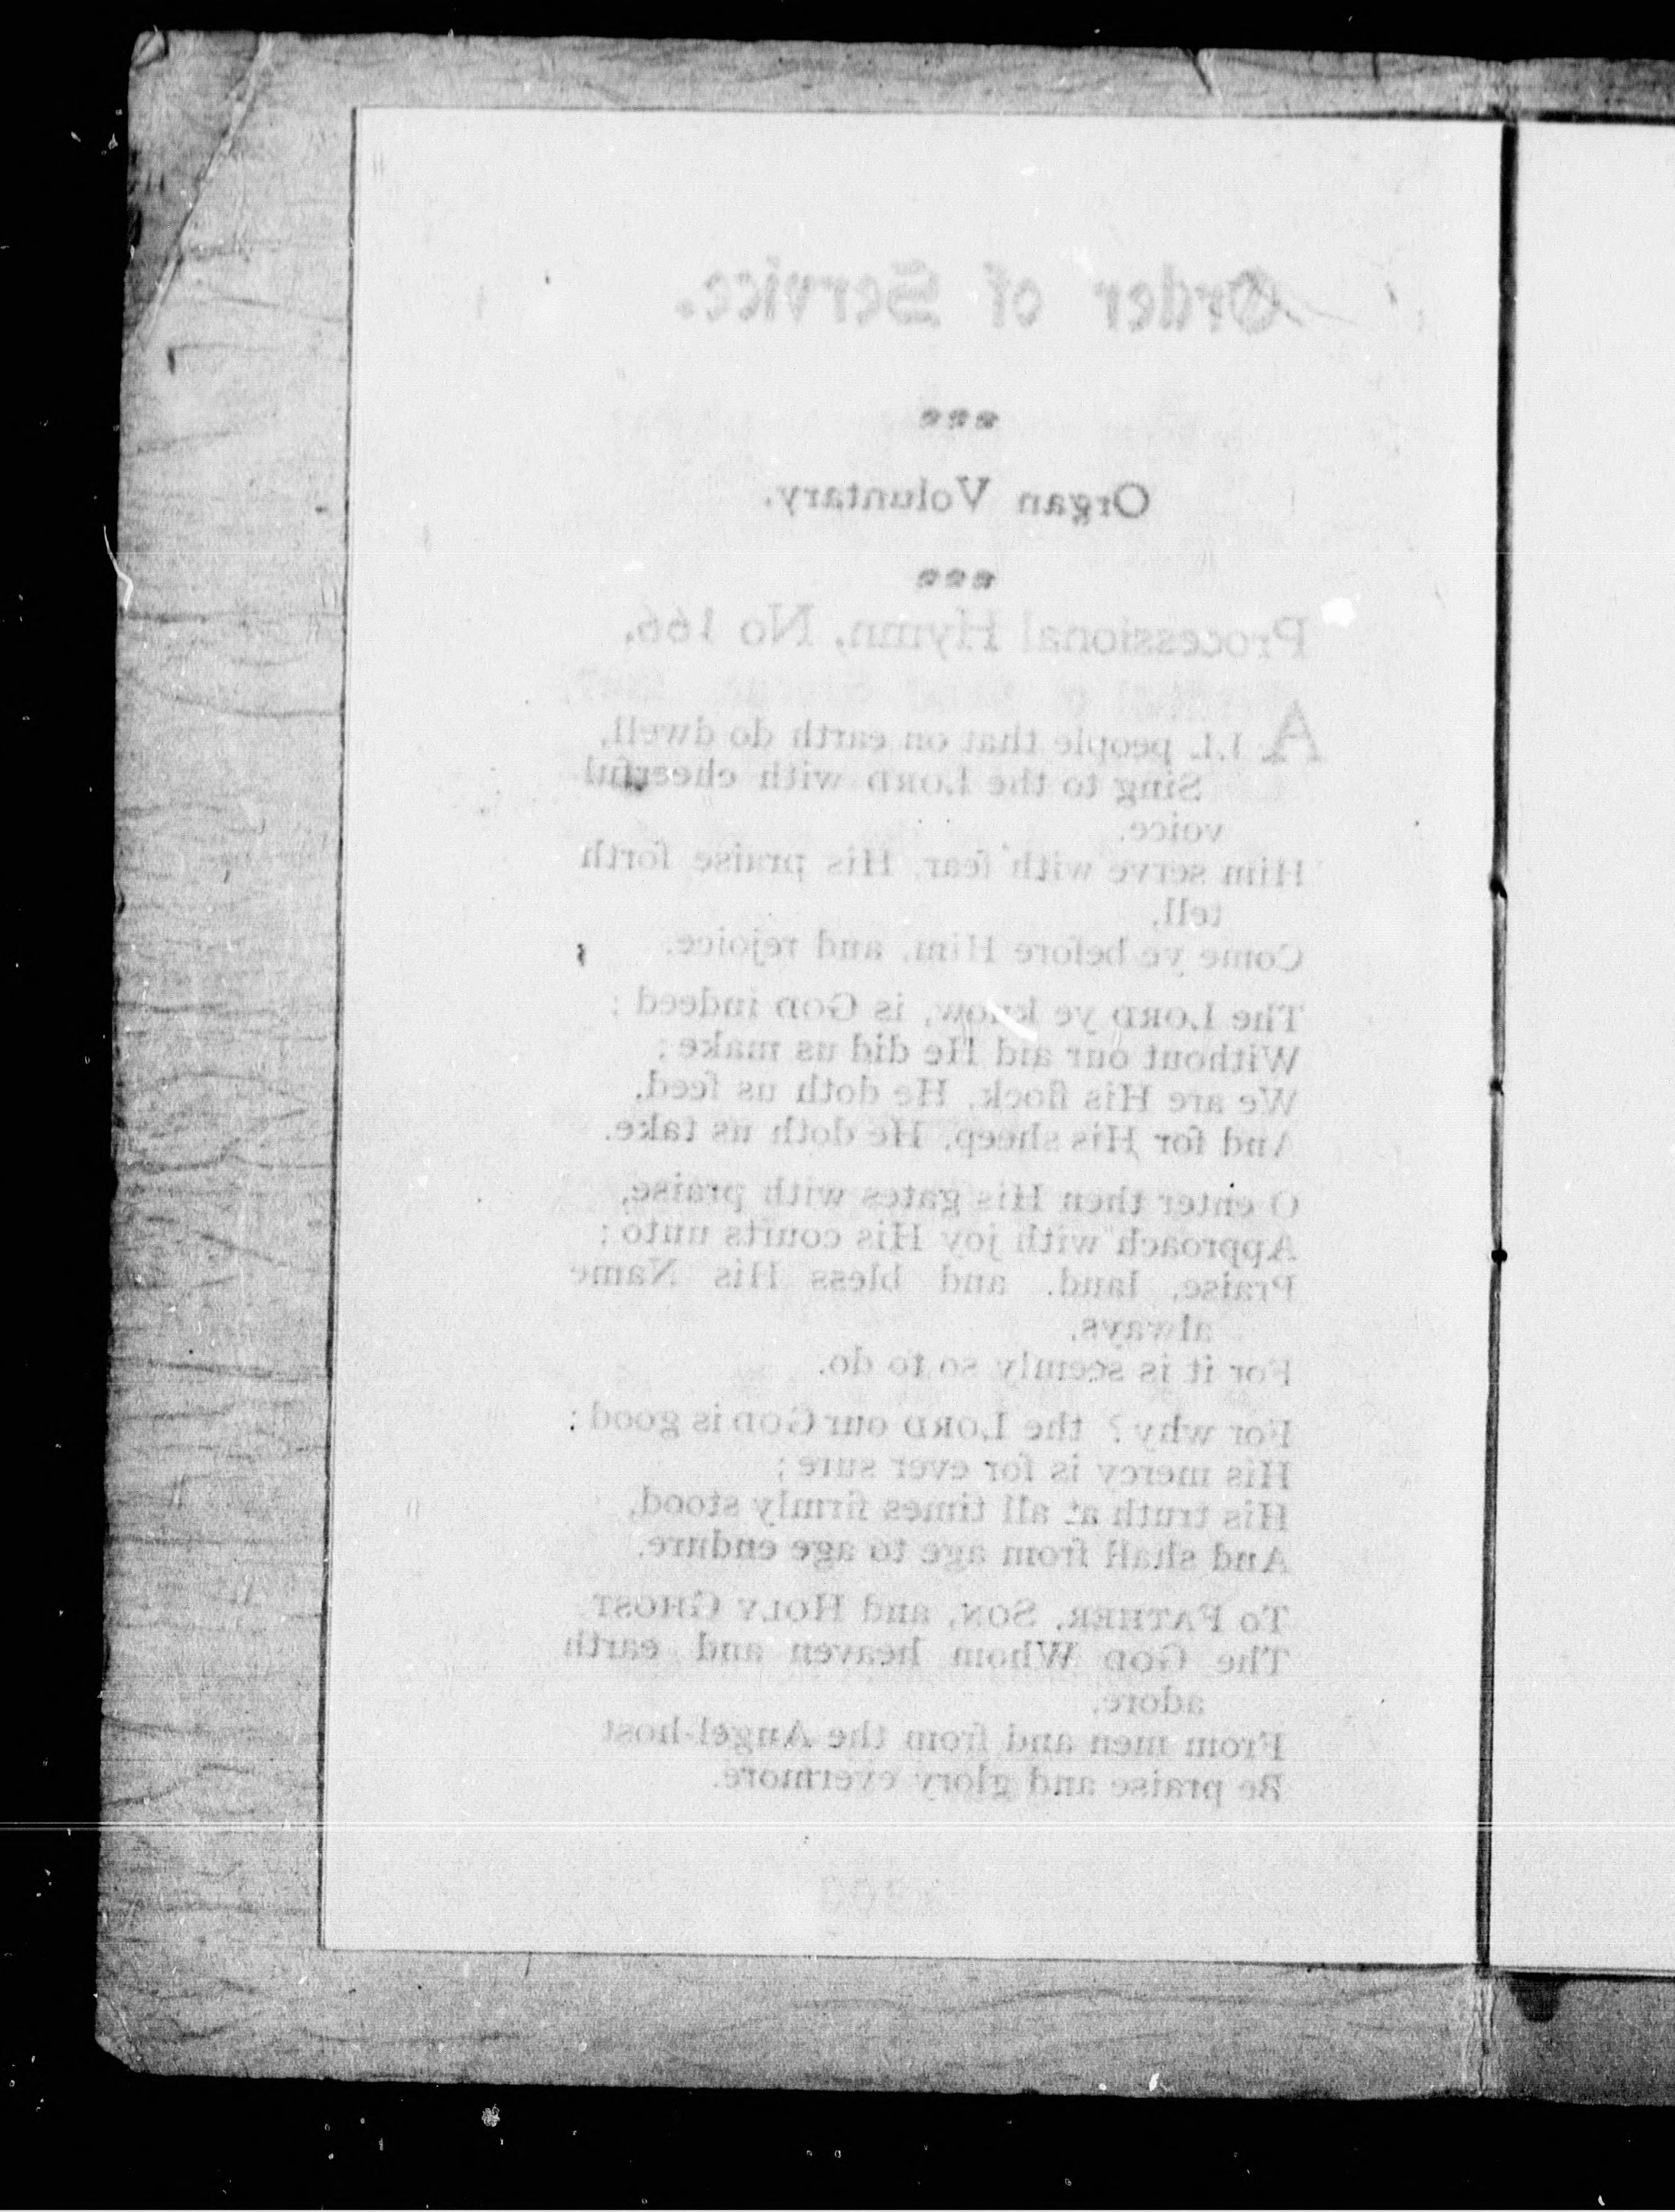 Order of Service.
Organ Voluntary.
Processional Hymn, No 166.
ALL people that on earth do dwell,
Sing to the LORD with cheerful
voice.
Him serve with fear, His praise forth
tell,
Come ye before Him, and rejoice.
The LORD ye know, is GOD indeed ;
Without our aid He did us make ;
We are His flock, He doth us feed,
And for His sheep, He doth us take.
O enter then His gates with praise,
Approach with joy His courts unto ;
Praise, laud, and bless His Name
always,
For it is seemly so to do.
For why ? the LORD our GOD is good ;
His mercy is for ever sure ;
His truth at all times firmly stood,
And shall from age to age endure.
To FATHER, SON, and HOLY GHOST
The GOD Whom heaven and earth
adore,
From men and from the Angel-host
Be praise and glory evermore.